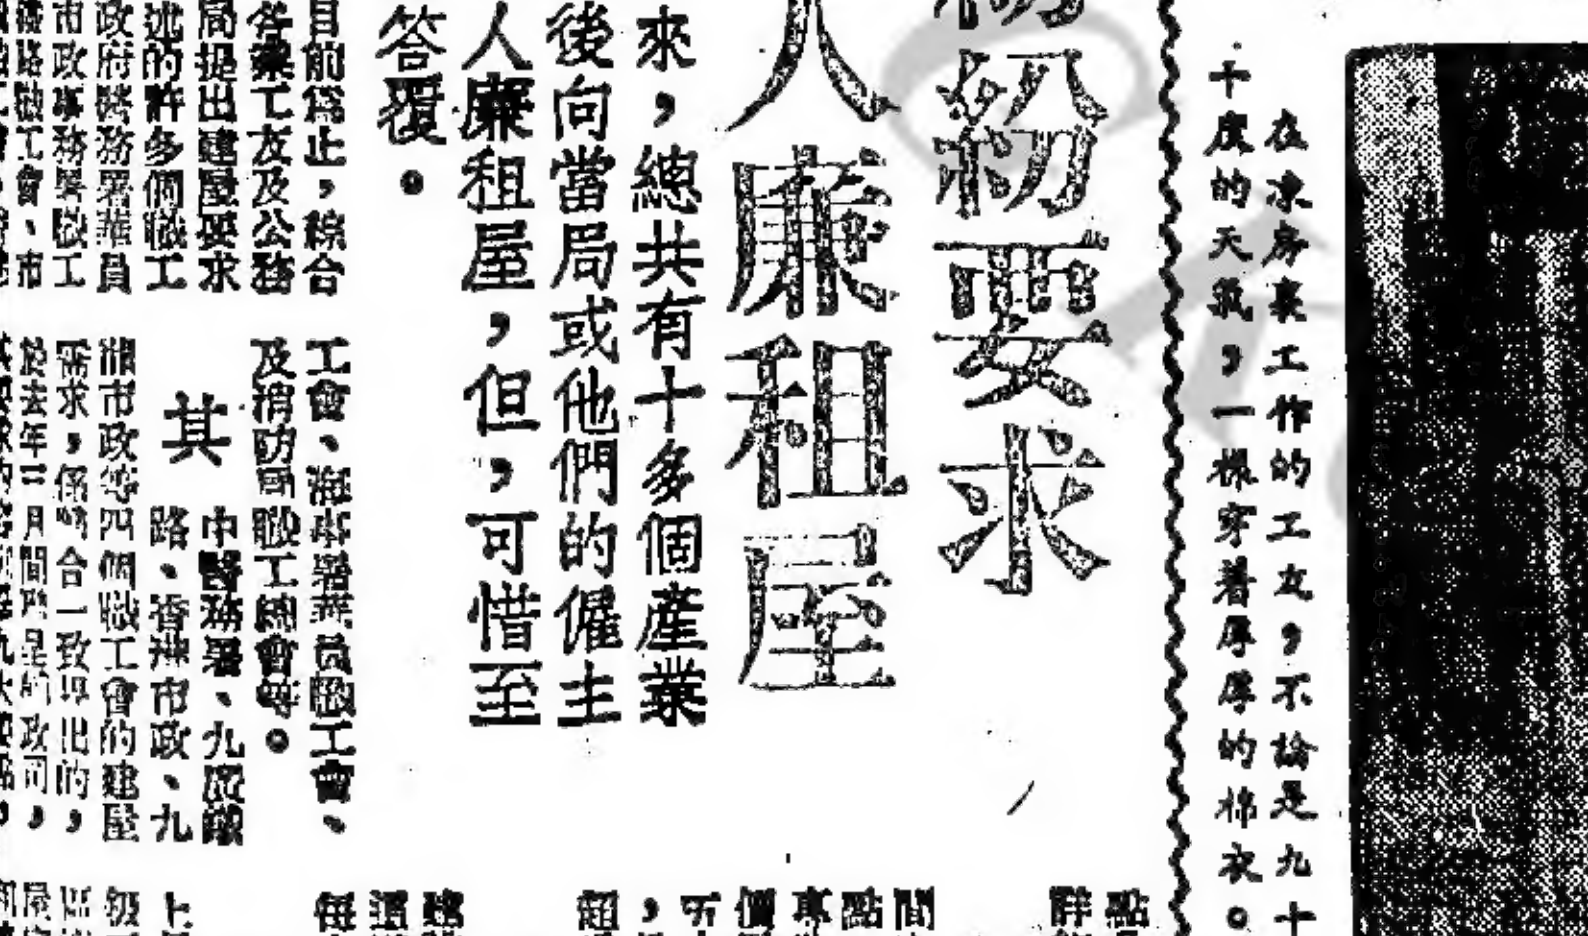 在凍房裏工作的工友，不論是九十
十度的天氣，一樣穿着厚厚的棉衣。
紛要求
人廉租屋
來，總共有十多個產業
後向當局或他們的僱主
人廉租屋，但，可惜至
答覆。
目前為止，綜合
各業工友及公務
局提出建屋要求
述的許多個職工
政府醫務署華員
市政事務署職工
路職工會、市
工會、海事署華員職工會、
及消防局職工總會等。
其
中醫務署、九廣鐵
路、香港市政、九
市政等四個職工會的建屋
需求，係 合一致 出的，
於去年三月間 政司，
點
詳
間
點
專
價
，
超
建
還
每
上